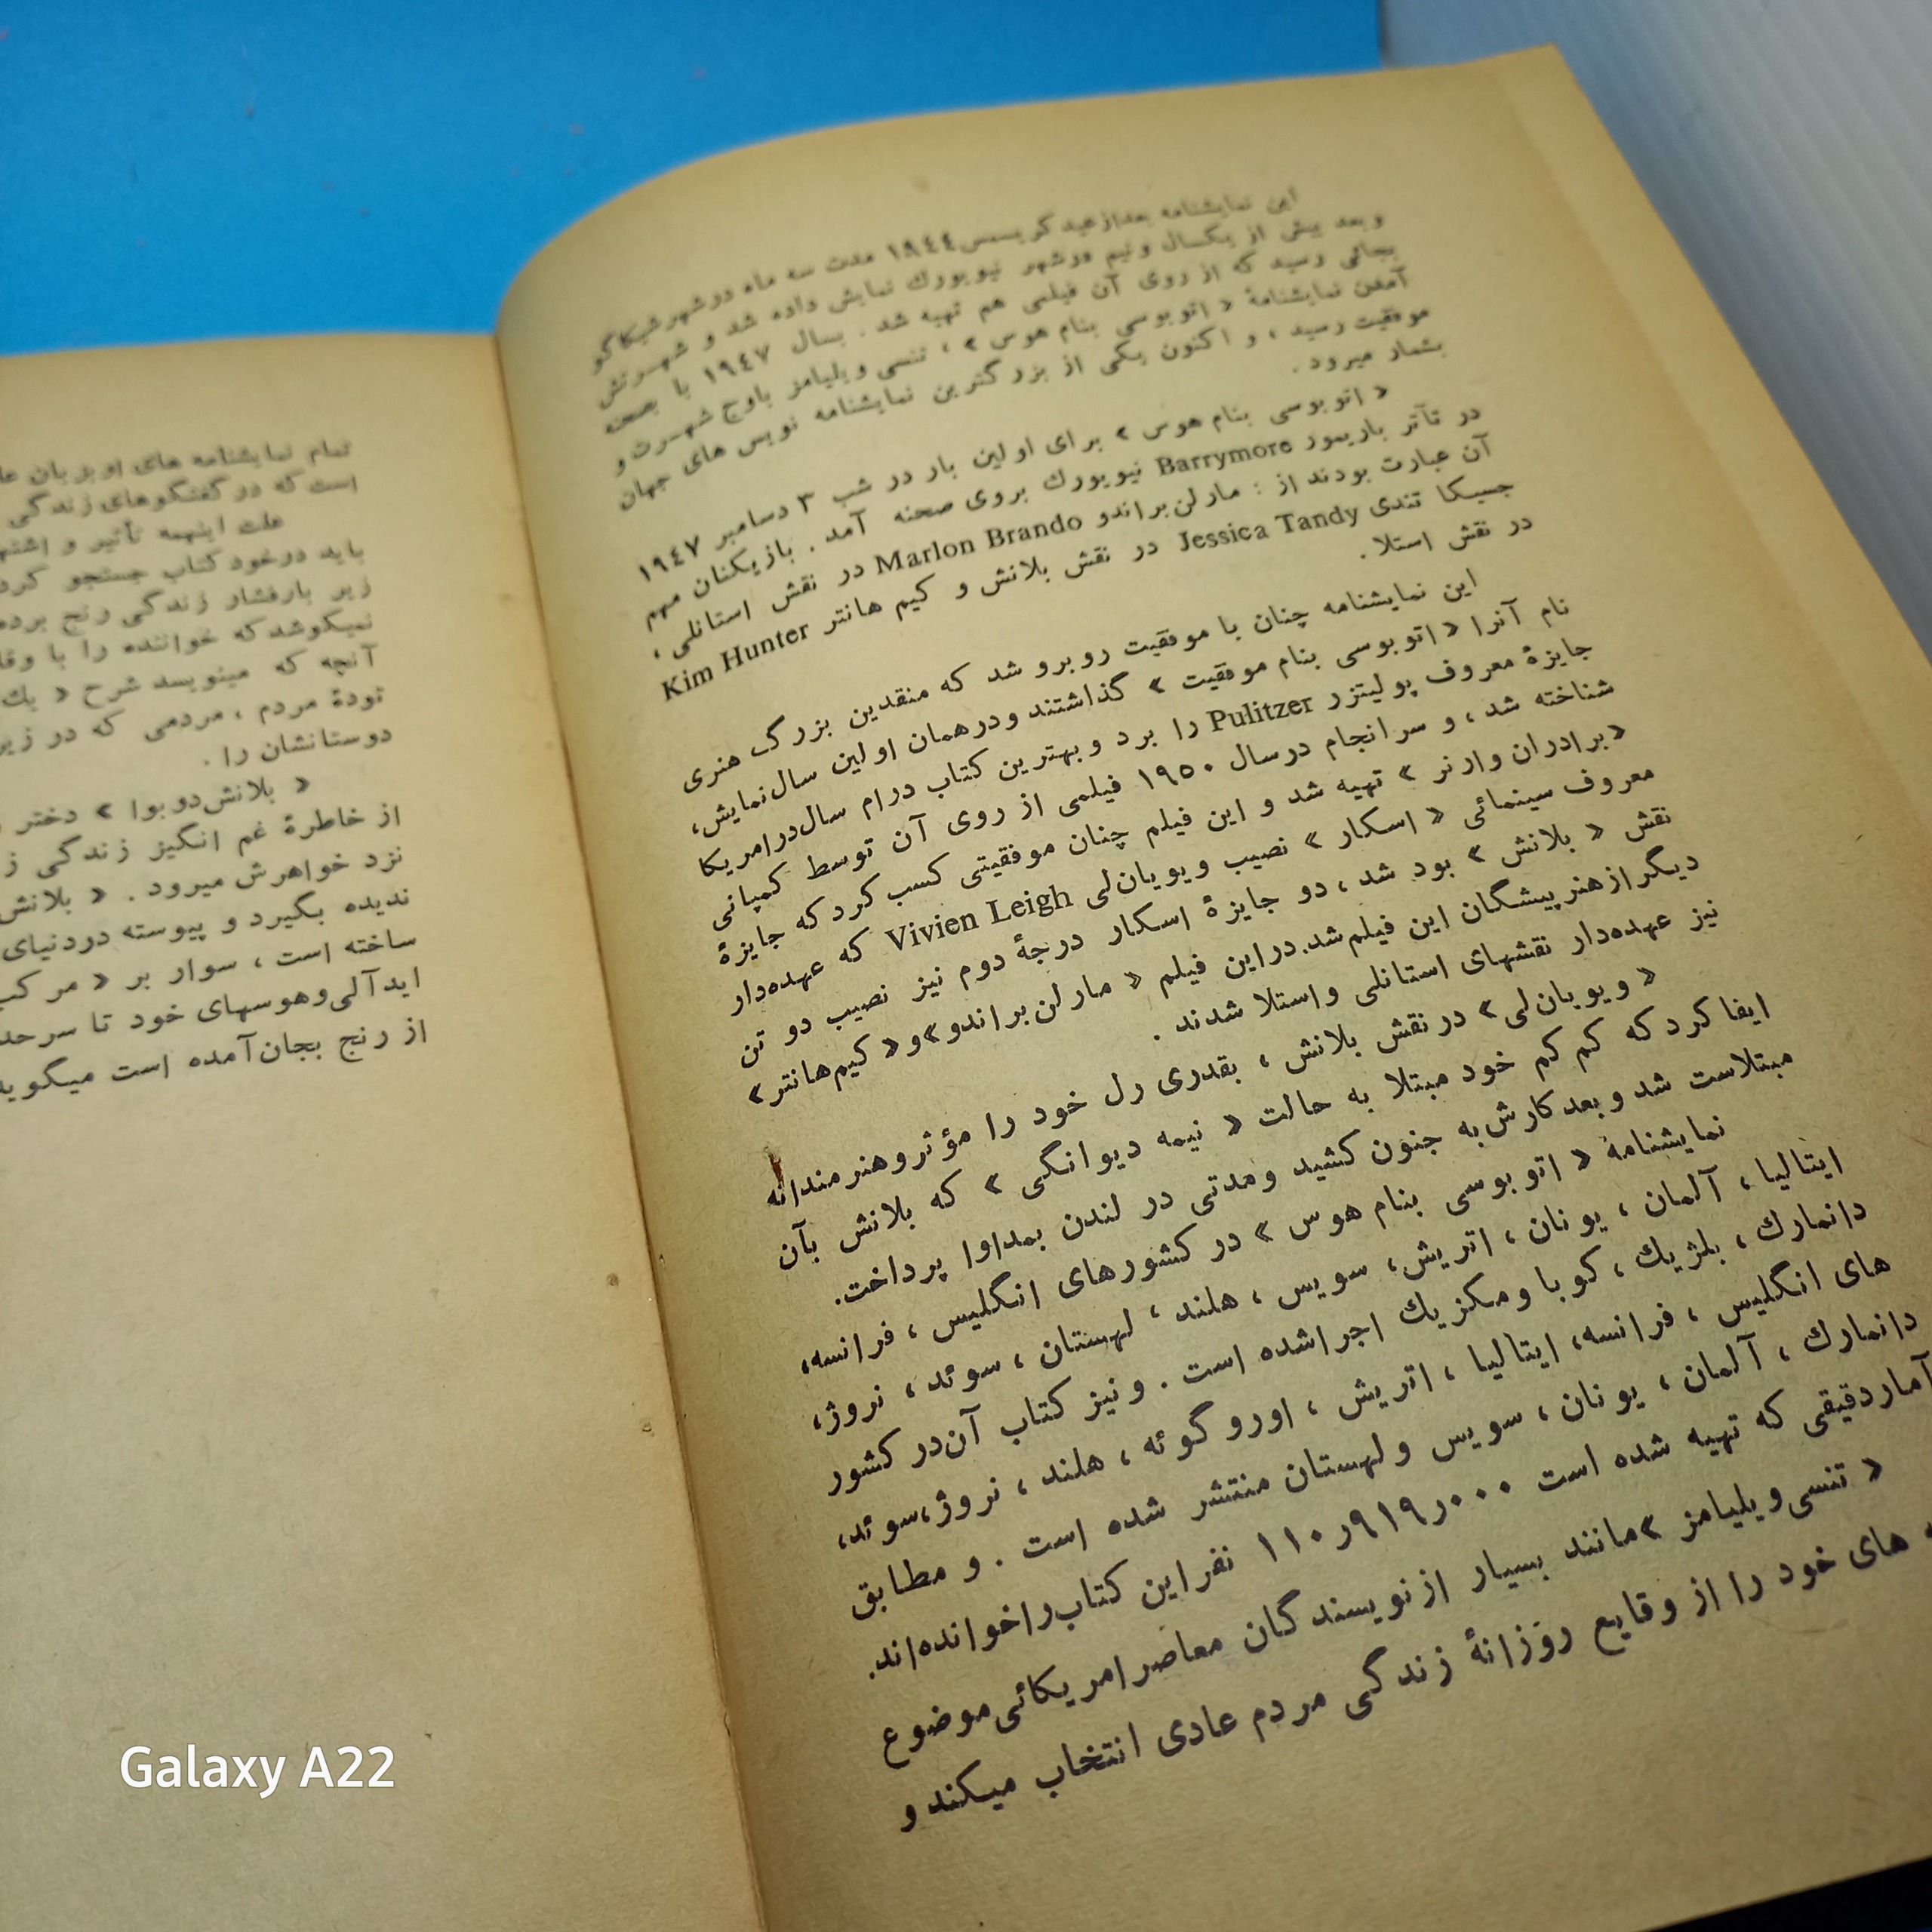 این نمایشنامه بعداز عید کریسمس ۱۹٤٤ مدت سه ماه در شهر شیکاگو
و بعد بیش از یکسال و نیم در شهر نیویورك نمایش داده شد و شهرتش
بجائی رسید که از روی آن فیلمی هم تهیه شد . بسال ۱۹٤۷ با بصحنه
آمدن نمایشنامهٔ « اتوبوسی بنام هوس » ، تنسی ویلیامز باوج شهرت و
موفقیت رسید ، و اکنون یکی از بزرگترین نمایشنامه نویس های جهان
بشمار میرود .
« اتوبوسی بنام هوس » برای اولین بار در شب ۳ دسامبر ۱۹٤۷
در تآتر باریمور Barrymore نیویورك بروی صحنه آمد . بازیکنان مهم
آن عبارت بودند از : مارلن‌براندو Marlon Brando در نقش استانلی ،
جسیکا تندی Jessica Tandy در نقش بلانش و کیم هانتر Kim Hunter
در نقش استلا .
این نمایشنامه چنان با موفقیت روبرو شد که منقدین بزرگ هنری
نام آنرا « اتوبوسی بنام موفقیت » گذاشتند و در همان اولین سال‌نمایش،
جایزهٔ معروف پولیتزر Pulitzer را برد و بهترین کتاب درام سال‌درامریکا
شناخته شد ، و سرانجام درسال ۱۹٥۰ فیلمی از روی آن توسط کمپانی
«برادران وارنر » تهیه شد و این فیلم چنان موفقیتی کسب کرد که جایزهٔ
معروف سینمائی « اسکار » نصیب ویویان‌لی Vivien Leigh که عهده‌دار
نقش « بلانش » بود شد ، دو جایزهٔ اسکار درجهٔ دوم نیز نصیب دو تن
دیگر از هنرپیشگان این فیلم‌شد. در این فیلم « مارلن‌براندو »و« کیم‌هانتر »
نیز عهده‌دار نقشهای استانلی واستلا شدند .
« ویویان‌لی» در نقش بلانش ، بقدری رل خود را مؤثر و هنرمندانه
ایفا کرد که کم کم خود مبتلا به حالت « نیمه دیوانگی » که بلانش بآن
مبتلاست شد و بعد کارش به جنون کشید ومدتی در لندن بمداوا پرداخت.
نمایشنامهٔ « اتوبوسی بنام هوس » در کشورهای انگلیس ، فرانسه،
ایتالیا ، آلمان ، یونان ، اتریش، سویس ، هلند ، لهستان ، سوئد ، نروژ،
دانمارك ، بلژیك ، کوبا ومکزیك اجرا شده است . و نیز کتاب آن‌در کشور
های انگلیس ، فرانسه، ایتالیا ، اتریش ، اوروگوئه ، هلند ، نروژ،سوئد،
دانمارك ، آلمان ، یونان ، سویس و لهستان منتشر شده است . و مطابق
آمار دقیقی که تهیه شده است ۱۱۰ر۹۱۹ر۰۰۰ نفر این کتاب‌راخوانده‌اند.
« تنسی‌ویلیامز »مانند بسیار از نویسندگان معاصر امریکائی‌موضوع
های خود را از وقایع روزانهٔ زندگی مردم عادی انتخاب میکند و
تمام نمایشنامه های او بزبان
است که در گفتگوهای زندگی
علت اینهمه تأثیر و
باید درخود کتاب جستجو کرد
زیر بارفشار زندگی رنج برده
نمیکوشد که خواننده را با
آنچه که مینویسد شرح « یك
تودهٔ مردم ، مردمی که در زیر
دوستانشان را .
« بلانش‌دوبوا » دختر
از خاطرهٔ غم انگیز زندگی
نزد خواهرش میرود . « بلانش
ندیده بگیرد و پیوسته دردنیای
ساخته است ، سوار بر «
ایدآلی‌وهوسهای خود تا
از رنج بجان‌آمده است